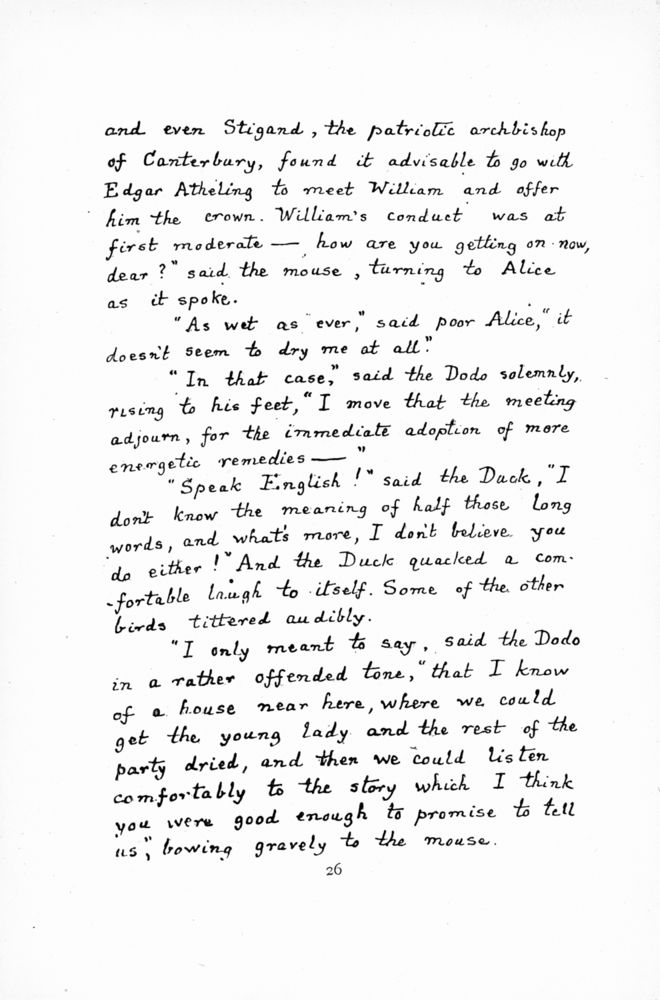 and even Stigand, the patriotic archbishop
of Canterbury, found it advisable to go with
Edgar Atheling to meet William and offer
him the crown. William's conduct was at
first moderate — how are you getting on now,
dear?" said the mouse, turning to Alice
as it spoke.
"As wet as ever," said poor Alice, "it
doesn't seem to dry me at all."
"In that case," said the Dodo solemnly,
rising to his feet, "I move that the meeting
adjourn, for the immediate adoption of more
energetic remedies — "
"Speak English!" said the Duck, "I
don't know the meaning of half those long
words, and what's more, I don't believe you
do either!" And the Duck quacked a com-
-fortable laugh to itself. Some of the other
birds tittered audibly.
"I only meant to say, said the Dodo
in a rather offended tone, "that I know
of a house near here, where we could
get the young lady and the rest of the
party dried, and then we could listen
comfortably to the story which I think
you were good enough to promise to tell
us," bowing gravely to the mouse.
26